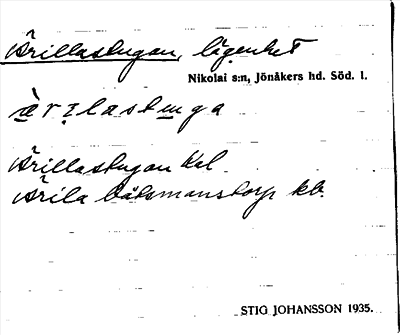 Ärillastugan, lägenhet
Nikolai s:n, Jönåkers hd. Söd. l.
Ärillastugan
Ärila båtsmanstorp kb.
STIG JOHANSSON 1935.